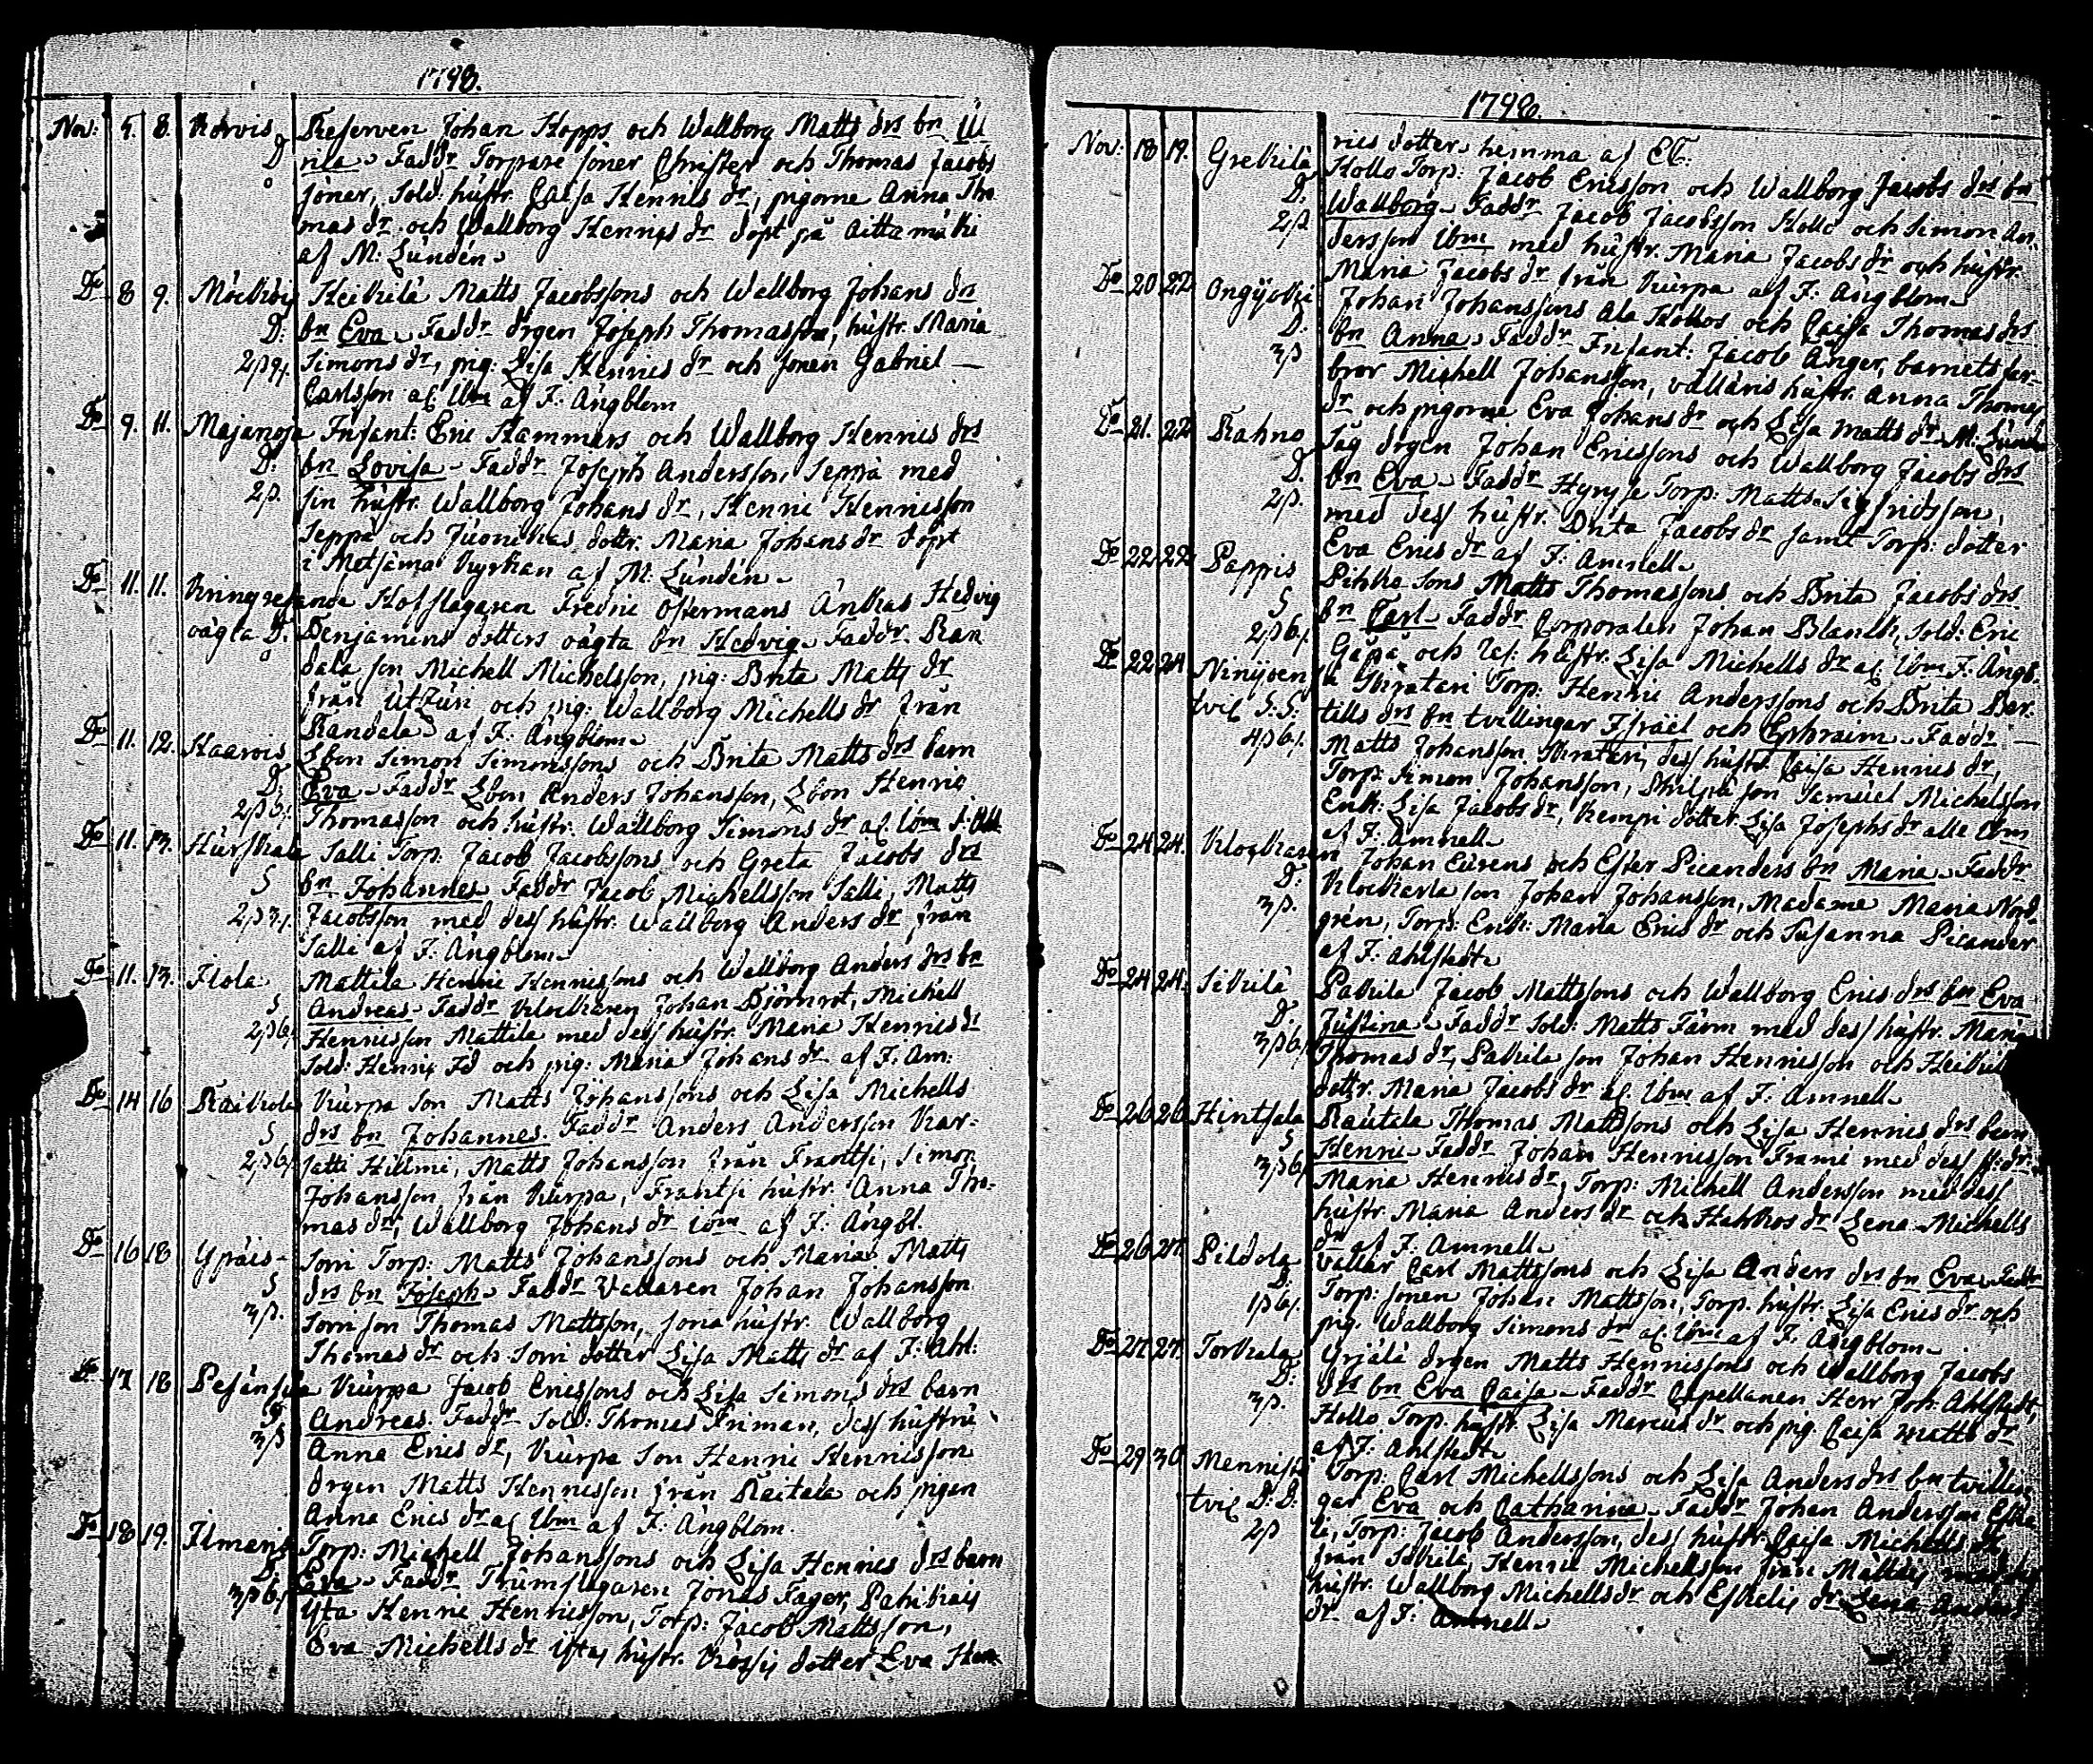 1798.
Nov: 5. 8. Korvis Reserven Johan Hopps och Wallborg Matts drs bn Ul
D rica Faddr Torpare söner Christer och Thomas Jacobs
söner, Sold: hustr. Caisa Henrics dr, pigorne Anna Tho
mas dr och Wallborg Henrics dr döpt på Aittamäki
af M: Lundén
Do 8 9. Heikilä Matts Jacobssons och Wallborg Johans drs
D: bn Eva Faddr drgen Joseph Thomasson, hustr. Maria
2ß 9 Simons dr, pig: Lisa Henrics dr och sonen Gabriel
Carlsson af Ibm af F: Ångblom
Do 9. 11. Majanoja Infant: Eric Hammars och Wallborg Henrics drs
D: bn Lovisa Faddr Joseph Andersson Seppä med
2ß. sin hustr. Wallborg Johans dr, Henric Henricsson
Seppä och Juonikas dottr. Maria Johans dr döpt
i Metsämaa Kyrkan af M: Lundén
Do 11. 11. Kringresande Hofslagaren Fredric Östermans Änkas Hedvig
oägta D: Benjamins dotters oägta bn Hedvig Faddr. Ran
dala son Michell Michelsson, pig: Brita Matts dr
från Utzuri och pig: Wallborg Michells dr från
Randala af F: Ångblom
Do 11. 12. Haarois Lbon Simon Simonssons och Brita Matts drs barn
D: Eva Faddr Lbon Anders Johansson, Lbon Henric
2ß 6 Thomasson och hustr. Wallborg Simons dr af Ibm
Do 11. 13. Hurskala Salli Torp: Jacob Jacobssons och Greta Jacobs drs
S bn Johannes Faddr Jacob Michellsson Salli, Matts
2ß 3 Jacobsson med dess hustr. Wallborg Anders dr från
Salli af F: Ångblom
Do 11. 13. Ilola Mattila Henric Henricssons och Wallborg Anders drs bn
S Andreas Faddr Klockaren Johan Björnrot, Michell
2ß 6 Henricsson Mattila med dess hustr. Maria Henrics dr
Sold: Henric Id och pig: Maria Johans dr af F: Am:
Do 14 16 Raikola Kurpa son Matts Johanssons och Lisa Michells
S drs bn Johannes. Faddr Anders Andersson Kar:
2ß 6 satti Hillmi, Matts Johansson från Frantsi, Simon
Johansson från Kurpa, Frantsi hustr. Anna Tho:
mas dr, Wallborg Johans dr Ibm af F: Ångbl.
Do 16 18 Ypäis- Soni Torp: Matts Johanssons och Maria Matts
S drs bn Joseph Faddr Vallaren Johan Johansson
3ß. Soni son Thomas Mattsson, sona hustr. Wallborg
Thomas dr och Soni dotter Lisa Matts dr af F: Ahl:
Do 17 18 Pesänsuo Kurppa Jacob Ericssons och Lisa Simons drs barn
S Andreas. Faddr Sold: Thomas Friman, dess hustru
3ß Anna Erics dr, Kurpa son Henric Henricsson
drgen Matts Henricsson från Raitala och pigan
Anna Erics dr af Ibm af F: Ångblom.
Do 18 19. Ilmaris Torp: Michell Johanssons och Lisa Henrics drs barn
D: Eva Faddr Trumslagaren Jonas Fager, Pahikais
3ß 6 Yta Henric Henricsson, Torp: Jacob Mattsson,
Eva Michells dr Ystas hustr. dotter Eva Hen
1798.
rics dotter hemma af
Nov: 18 19. Greikilä Kollo Torp: Jacob Ericsson och Wallborg Jacobs drs bn
D. Wallborg Faddr Jacob Jacobsson Kollo och Simon An
2ß dersson Ibm med hustr. Maria Jacobs dr och hustr.
Maria Jacobs dr från Kurpa af F: Ångblom
Do 20 22 Johan Johanssons Ala Kollos och Caisa Thomas drs
D: bn Anna Faddr Infant: Jacob Ånger, barnets far-
3ß bror Michell Johansson, vallaris hustr. Anna Thomas
dr och pigorne Eva Johans dr och Lisa Matts dr M: Lundn
Do 21. 22 Rahno Säg drgen Johan Ericssons och Wallborg Jacobs drs
D. bn Eva Faddr Hyrysle Torp: Matts Sigfridsson,
2ß. med dess hustr. Brita Jacobs dr samt Torp: dotter
Eva Erics dr af F: Amnell
Do 22. 22 Pappis Pihko Sons Matts Thomassons och Brita Jacobs drs
S bn Carl Faddr Corporalen Johan Blanck, Sold: Eric
2ß 6 Gåpå och hustr. Lisa Michells dr af Ibm F: Ångb.
Do 22 24 Torp: Henric Anderssons och Brita Ber:
tvil S: S: tills drs bn tvillingar Israel och Ephraim Faddr
4ß 6 Matts Johansson, dess hustr. Caisa Henrics dr,
Torp: Simon Johansson, son Samuel Michelsson
Enk: Lisa Jacobs dr, Kempi dotter Lisa Josephs dr alle Ibm
af F: Amnell
Do 24 24. Klockaren Johan Eurens och Ester Picanders bn Maria Faddr
D: Klockarla son Johan Johansson, Madame Maria Nord-
3ß. grén, Torp: Enk: Maria Erics dr och Susanna Picander
af F: Ahlstedt
Do 24 24. Sikilä Pakila Jacob Mattssons och Wallborg Erics drs bn Eva
D. Justina Faddr Sold: Matts Färm med dess hustr. Maria
3ß 6 Thomas dr, Pakila son Johan Henricsson och Heikilä
dottr. Maria Jacobs dr af Ibm af F: Amnell
Do 26 26 Hintsala Rautala Thomas Mattssons och Lisa Henrics drs barn
S Henric Faddr Johan Henricsson med dess
3ß 6 Maria Henrics dr, Torp: Michell Andersson med dess
hustr. Maria Anders dr och Hakkos dr Lena Michells
dr af F: Amnell
Do 26 27. Pildola Vallar Carl Mattssons och Lisa Anders drs bn Eva Faddr
D: Torp: sonen Johan Mattsson, Torp. hustr. Lisa Erics dr och
1ß 6 pig. Wallborg Simons dr af Ibm af F. Ångblom
Do 27 27. Torkala Yrjälä drgen Matts Henricssons och Wallborg Jacobs
D: drs bn Eva Caisa Faddr Capellanen Herr Joh: Ahlstedt,
3ß. Hollo Torp. hustr. Lisa Marcus dr och pig. Caisa Matts dr
af F: Ahlstedt
Do 29 30 Mennist Torp: Carl Michellssons och Lisa Anders drs bn tvillin
tvil D: D. gar Eva och Catharina Faddr Johan Andersson Eske
2ß li, Torp: Jacob Andersson, dess hustr. Caisa Michells dr
från Sikilä, Henric Michellsson från
hustr. Wallborg Michells dr och Eskelis dr Lena
dr af F: Amnell